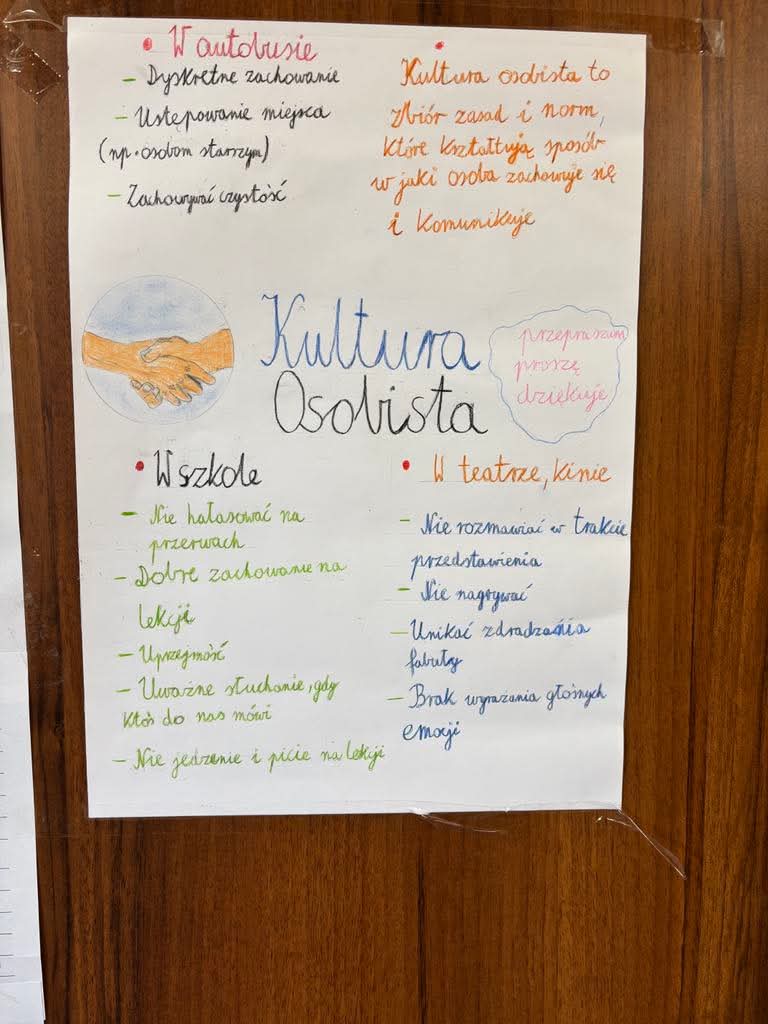 W autobusie
– Dyskretne zachowanie
– Ustępowanie miejsca
(np. osobom starszym)
– Zachowywać czystość
Kultura osobista to
zbiór zasad i norm,
które kształtują sposób
w jaki osoba zachowuje się
i komunikuje
Kultura
Osobista
przepraszam
proszę
dziękuje
W szkole
– Nie hałasować na
przerwach
– Dobre zachowanie na
lekcji
– Uprzejmość
– Uważne słuchanie, gdy
ktoś do nas mówi
– Nie jedzenie i picie na lekcji
W teatrze, kinie
– Nie rozmawiać w trakcie
przedstawienia
– Nie nagrywać
– Unikać zdradzania
fabuły
– Brak wyrażania głośnych
emocji